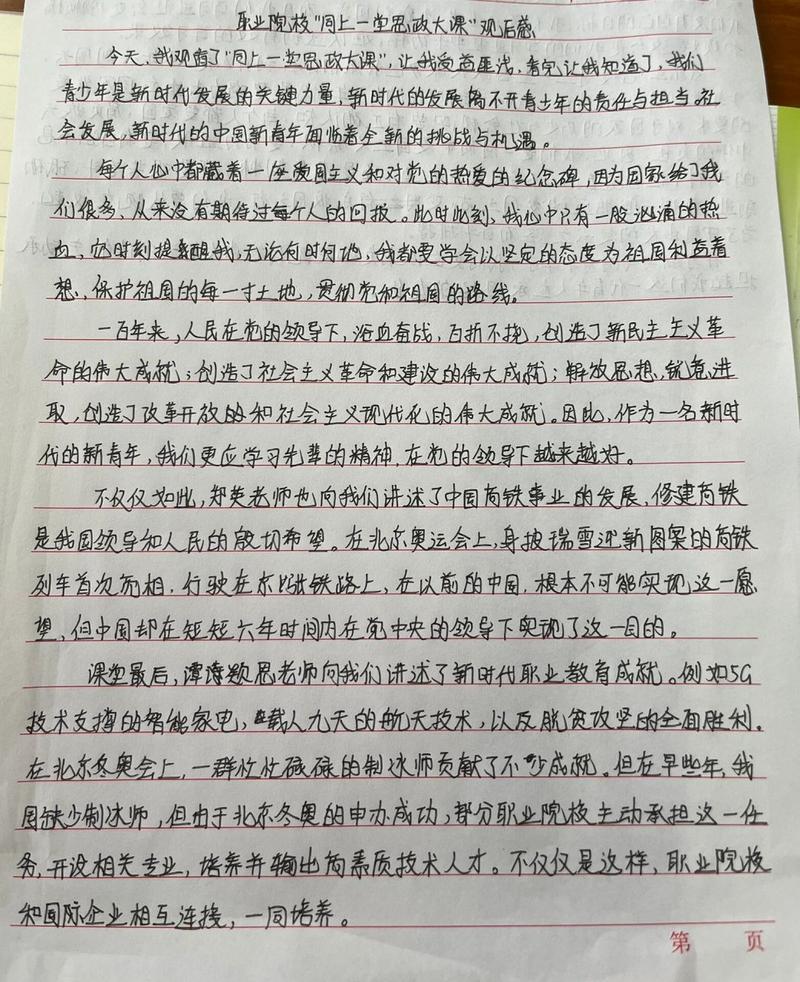 职业院校“同上一堂思政大课”观后感
今天,我观看了“同上一堂思政大课”,让我受益匪浅,看完让我知道了,我们
青少年是新时代发展的关键力量,新时代的发展离不开青少年的责任与担当。社
会发展,新时代的中国新青年面临着全新的挑战与机遇。
每个人心中都藏着一座爱国主义和对党的热爱的纪念碑,因为国家给了我
们很多,从来没有期待过每个人的回报。此时此刻,我心中只有一股汹涌的热
血,它时刻提醒我,无论何时何地,我都要学会以坚定的态度为祖国利益着
想,保护祖国的每一寸土地,贯彻党和祖国的路线。
一百年来,人民在党的领导下,浴血奋战,百折不挠,创造了新民主主义革
命的伟大成就;创造了社会主义革命和建设的伟大成就;解放思想,锐意进
取,创造了改革开放的和社会主义现代化的伟大成就。因此,作为一名新时
代的新青年,我们更应学习先辈的精神,在党的领导下越来越好。
不仅仅如此,郑英老师也向我们讲述了中国高铁事业的发展,修建高铁
是我国领导和人民的殷切希望。在北京奥运会上,身披瑞雪迎新图案的高铁
列车首次亮相,行驶在京张铁路上,在以前的中国,根本不可能实现这一愿
望,但中国却在短短六年时间内在党中央的领导下实现了这一目的。
课堂最后,谭诗颖思老师向我们讲述了新时代职业教育成就。例如5G
技术支撑的智能家电,载人九天的航天技术,以及脱贫攻坚的全面胜利。
在北京冬奥会上,一群忙忙碌碌的制冰师贡献了不少成就。但在早些年,我
国缺少制冰师,但由于北京冬奥的申办成功,部分职业院校主动承担这一任
务,开设相关专业,培养并输出高素质技术人才。不仅仅是这样,职业院校
和国际企业相互连接,一同培养。
第 页